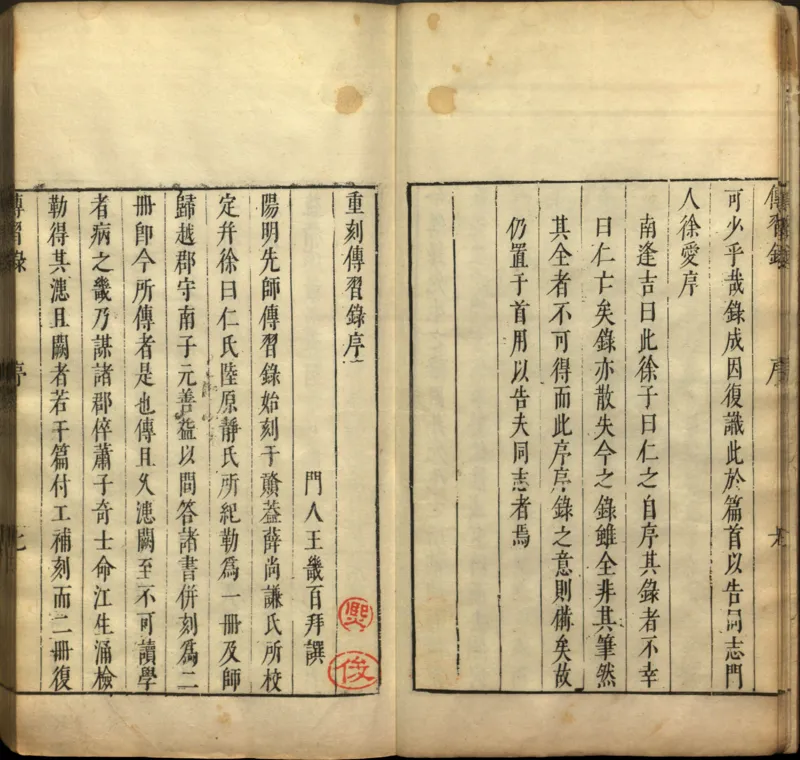 傳習錄
序
可少乎哉錄成因復識此於篇首以告同志門
人徐愛序
南逢吉曰此徐子曰仁之自序其錄者不幸
曰仁亡矣錄亦散失今之錄雖全非其筆然
其全者不可得而此序序錄之意則備矣故
仍置于首用以告夫同志者焉
重刻傳習錄序
門人王畿百拜譔
陽明先師傳習錄始刻于贑葢薛尚謙氏所校
定幷徐曰仁氏陸原靜氏所紀勒為一冊及師
歸越郡守南子元善益以問答諸書併刻為二
冊卽今所傳者是也傳且久漶闕至不可讀學
者病之畿乃謀諸郡倅蕭子奇士命江生涌檢
勒得其漶且闕者若干篇付工補刻而二冊復
傳習錄
序